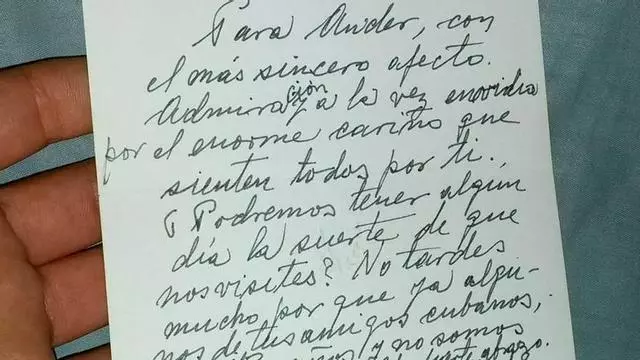 Para Ander, con
el más sincero afecto.
Admiración y a la vez envidia
por el enorme cariño que
sienten todos por ti.
¿Podremos tener algún
día la suerte de que
nos visites? No tardes
mucho por que ya algu-
nos de tus amigos cubanos,
y no somos
abrazo.